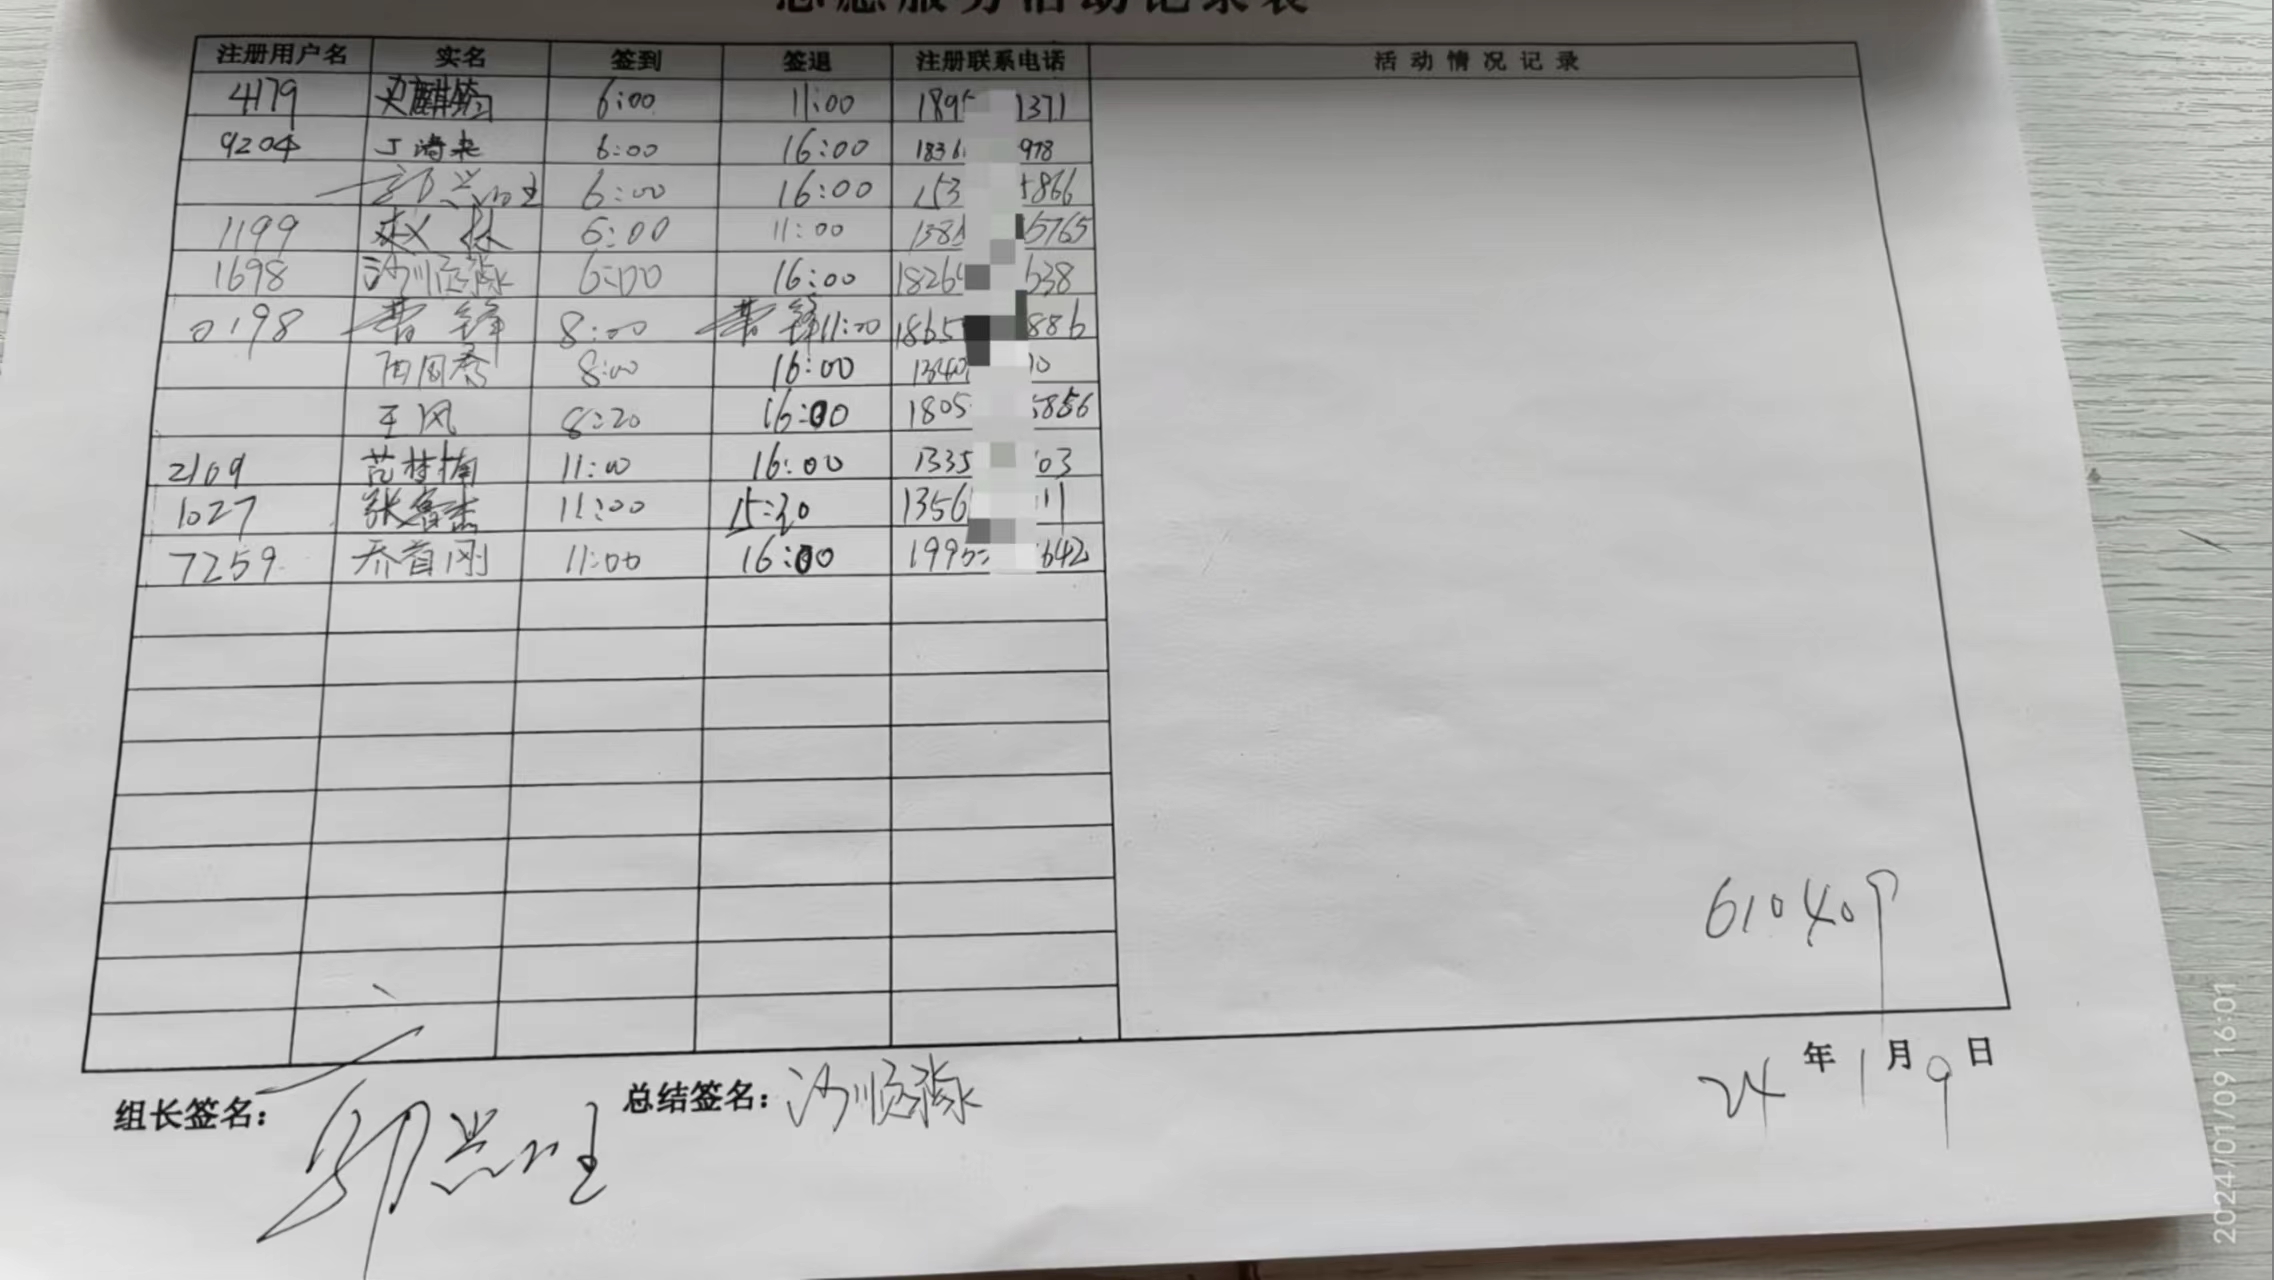 志愿服务活动记录表
注册用户名 实名 签到 签退 注册联系电话 活动情况记录
4179 6:00 11:00 1895 1371
9204 丁海忠 6:00 16:00 1836 978
6:00 16:00 153 866
1199 赵 林 6:00 11:00 1381 5765
1698 沙顺泳 6:00 16:00 1826 638
0198 曹 锋 8:00 曹 锋 11:00 1865 886
8:00 16:00 1340 10
王风 8:20 16:00 1805 5856
2109 范梦楠 11:00 16:00 1335 03
1027 张鲁杰 11:00 15:30 1356 11
7259 乔首刚 11:00 16:00 1995 642
610409
24 年 1 月 9 日
组长签名:
总结签名: 沙顺泳
2024/01/09 16:01